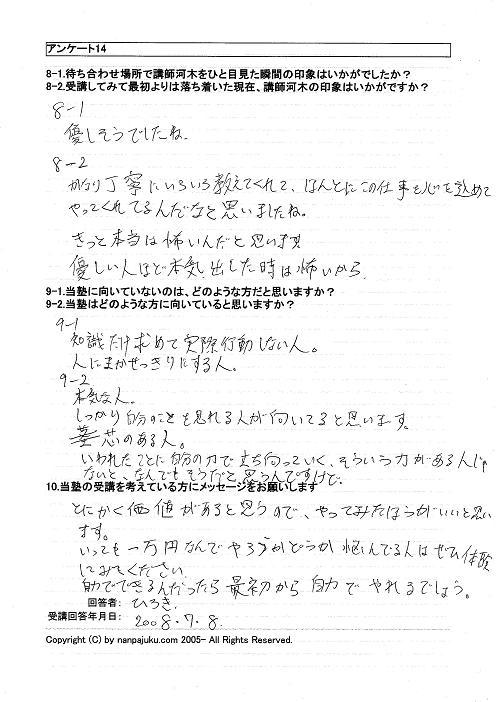 アンケート14
8-1.待ち合わせ場所で講師河木をひと目見た瞬間の印象はいかがでしたか？
8-2.受講してみて最初よりは落ち着いた現在、講師河木の印象はいかがですか？
8-1
優しそうでしたね。
8-2
かなり丁寧にいろいろ教えてくれて、ほんとにこの仕事を心を込めて
やってくれてるんだなと思いましたね。
きっと本当は怖いんだと思います
優しい人ほど本気出した時は怖いから。
9-1.当塾に向いていないのは、どのような方だと思いますか？
9-2.当塾はどのような方に向いていると思いますか？
9-1
知識だけ求めて実際行動しない人。
人にまかせっきりにする人。
9-2
本気な人。
しっかり自分のことを思れる人が向いてると思います。
芯のある人。
いわれたことに自分の力で立ち向っていく、そういう力がある人じゃ
ないと、なんでもそうだと思うんですけど。
10.当塾の受講を考えている方にメッセージをお願いします
とにかく価値があると思うので、やってみたほうがいいと思い
ます。
いっても一万円なんでやろうかどうか悩んでる人はぜひ体験
してみてください
助でできるんだったら最初から自力でやれるでしょう。
回答者： ひろき.
受講回答年月日： 2008.7.8.
Copyright (C) by nanpajuku.com 2005- All Rights Reserved.